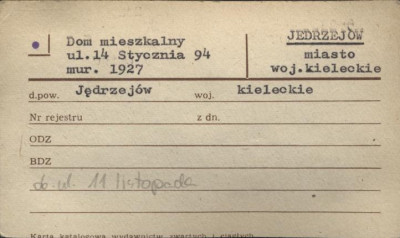 Dom mieszkalny
ul.14 Stycznia 94
mur. 1927
JĘDRZEJÓW
miasto
woj.kieleckie
d.pow. Jędrzejów woj. kieleckie
Nr rejestru z dn.
ODZ
BDZ
ob. ul. 11 listopada
Karta katalogowa wydawnictw zwartych i ciągłych